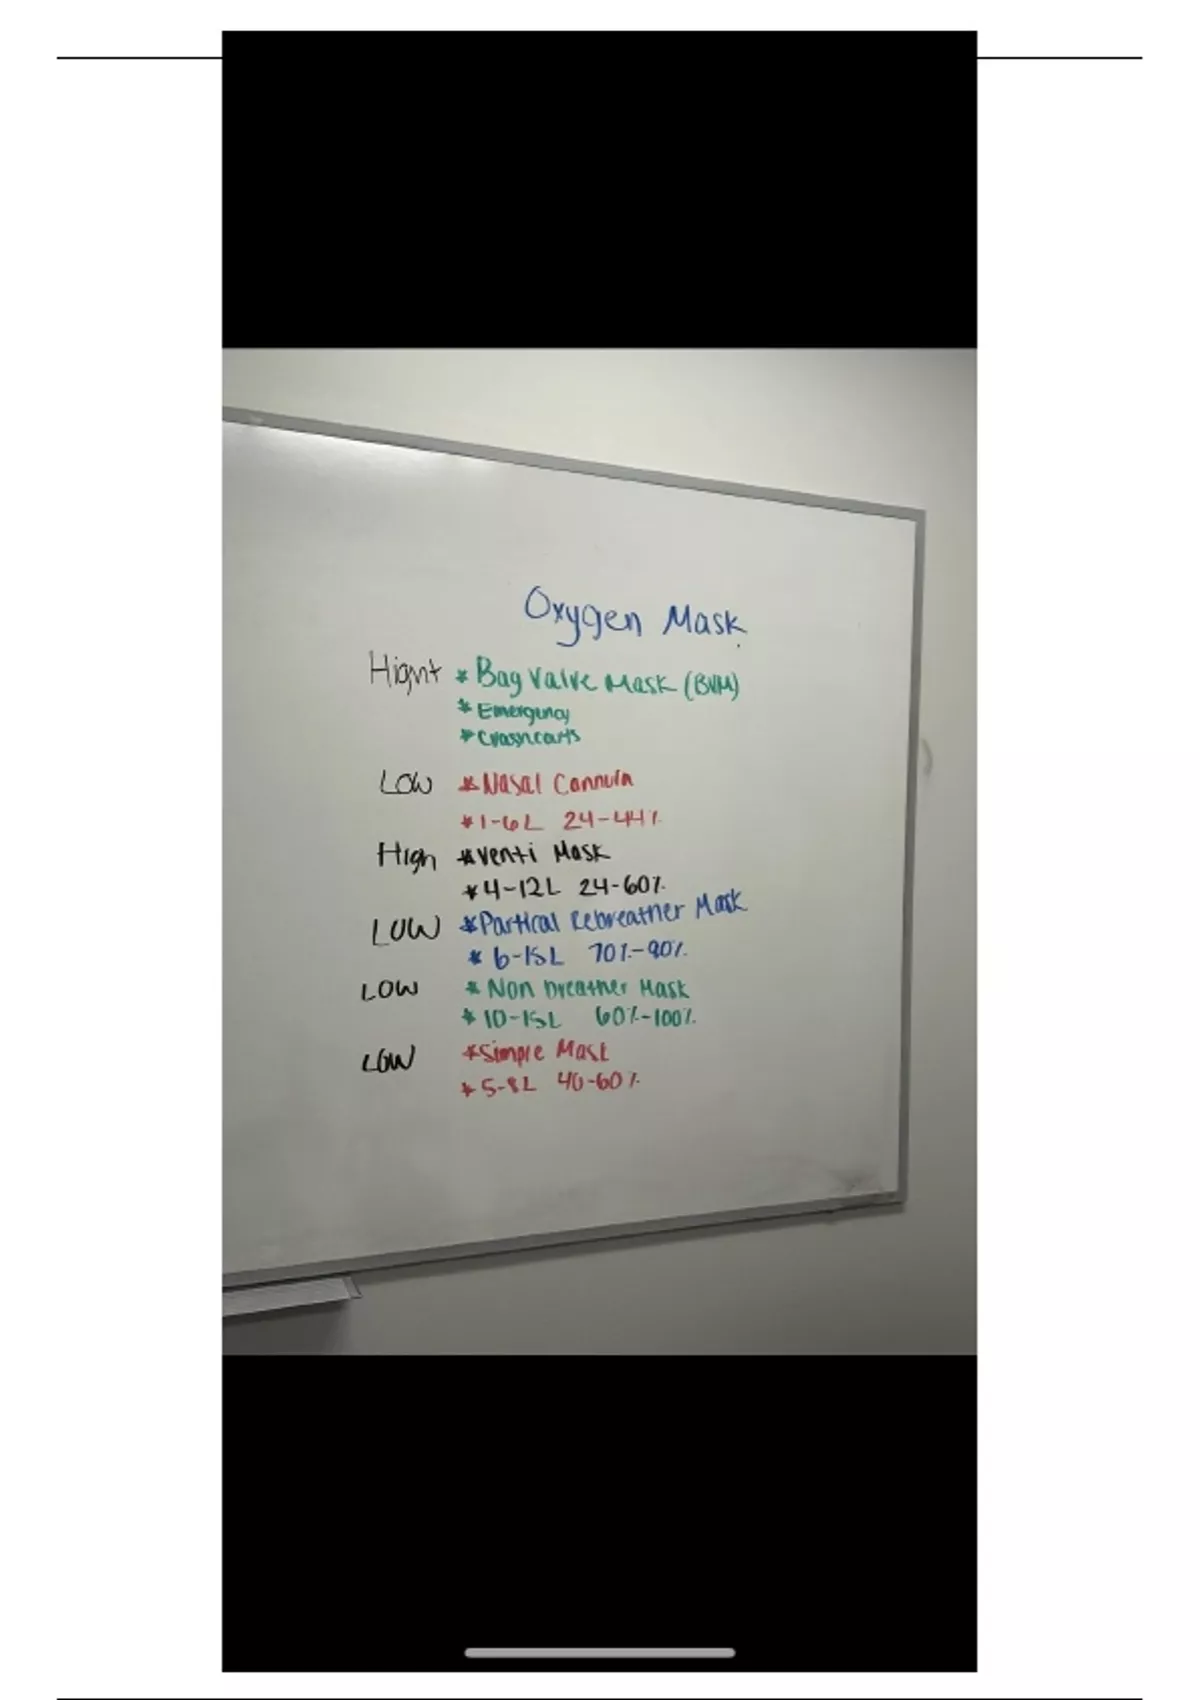 Oxygen Mask
Hight * Bag Valve Mask (BVM)
* Emergency
* Crashcarts
LOW * Nasal Cannula
* 1-6L 24-44%
High * Venti Mask
* 4-12L 24-60%
LOW * Partical Rebreather Mask
* 6-15L 70%-90%
LOW * Non breather Mask
* 10-15L 60%-100%
LOW * Simple Mask
* 5-8L 40-60%